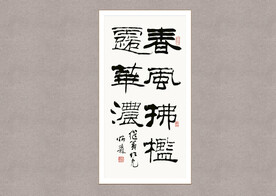 春風拂檻
露華濃